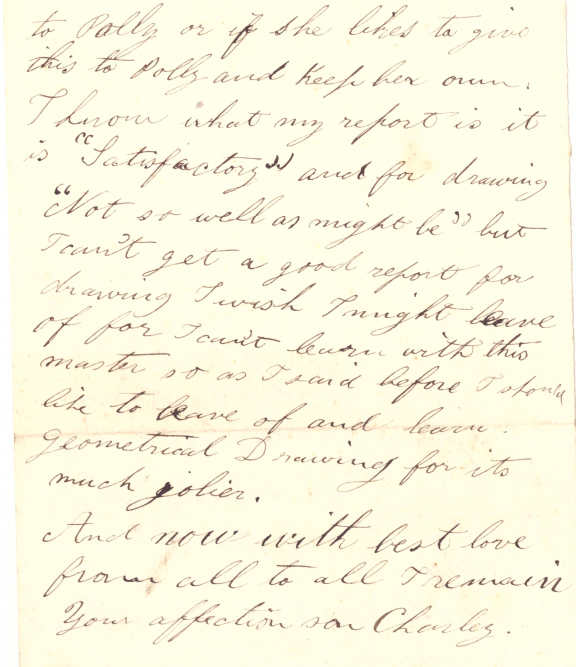 to Polly or if she likes to give
this to Polly and Keep her own.
I know what my report is it
is "Satisfactory" and for drawing
"Not so well as might be" but
I can't get a good report for
drawing I wish I might leave
of for I can't learn with this
master so as I said before I should
like to leave of and learn.
geometrical Drawing for its
much jolier.
And now with best love
from all to all I remain
Your affection son Charley.